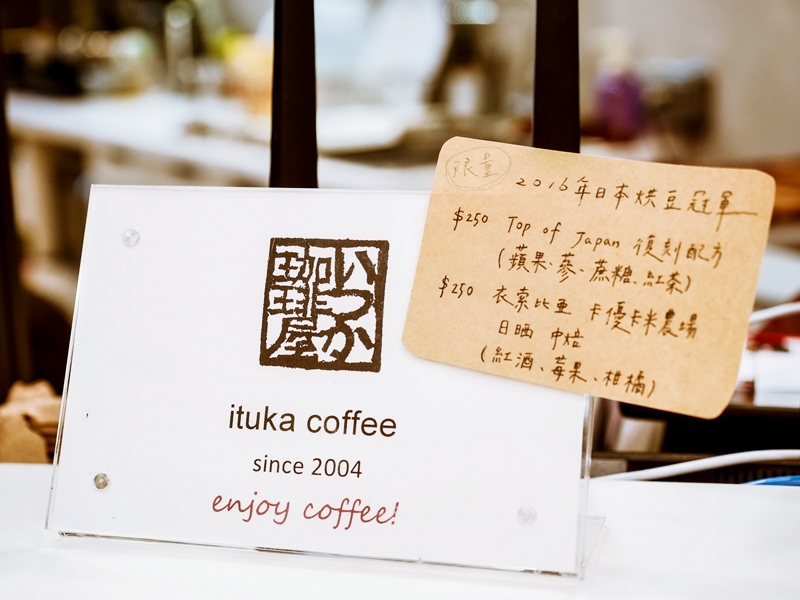 珈琲屋
いつか
ituka coffee
since 2004
enjoy coffee!
限量
2016年日本烘豆冠軍
$250 Top of Japan 復刻配方
(蘋果、蔘、蔗糖、紅茶)
$250 衣索比亜 卡優卡米農場
日晒 中焙
(紅酒、莓果、柑橘)